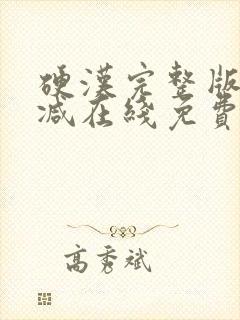 硬漢完整版
減在綫免費
高秀斌